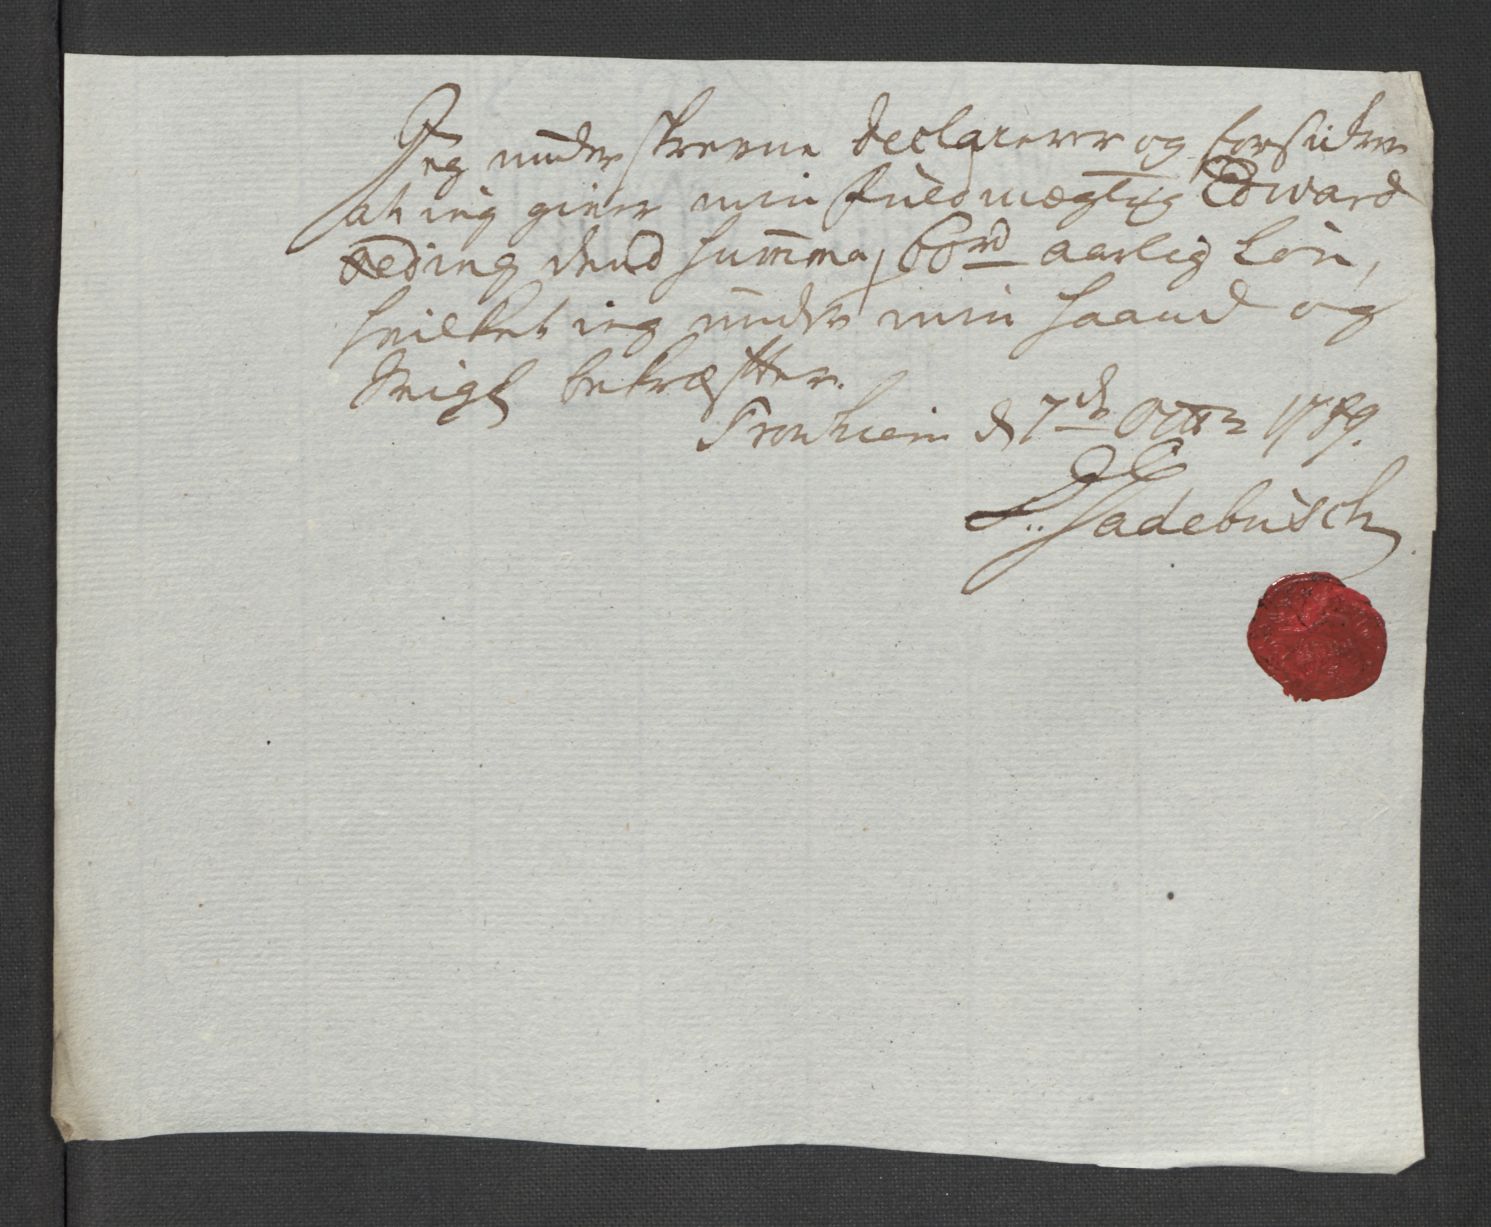 Jeg underskrevne declarerer og forsickrer
at ieg giver min fuldmægtig Edward
Reding dend Summa, 60 rd aarlig Løn,
hvilket ieg under min Haand og
Seigl bekræfter.
Tronhiem d 7de Octbr 1789.
Gadebusch